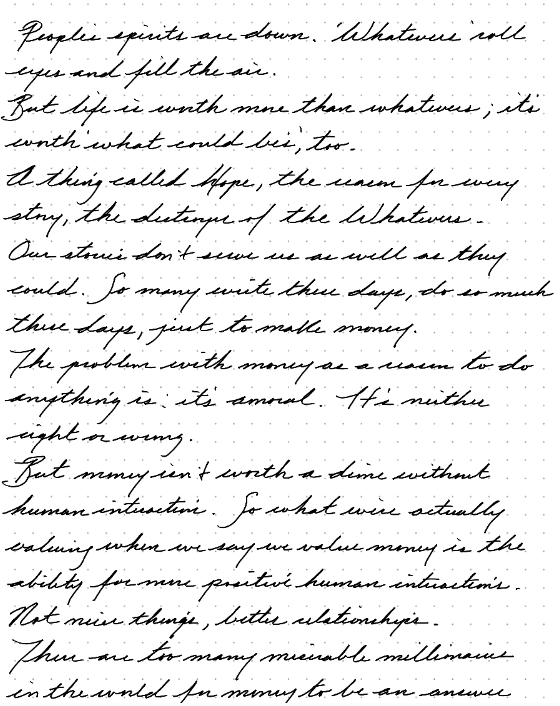 Peoples spirits are down. 'Whatevers' roll
eyes and fill the air.
But life is worth more than whatevers; it's
worth 'what could be's', too.
A thing called Hope, the reason for every
story, the destroyer of the Whatevers.
Our stories don't serve us as well as they
could. So many write these days, do so much
these days, just to make money.
The problem with money as a reason to do
anything is: it's amoral. It's neither
right or wrong.
But money isn't worth a dime without
human interaction. So what we're actually
valuing when we say we value money is the
ability for more positive human interactions.
Not nicer things, better relationships.
There are too many miserable millionaires
in the world for money to be an answer